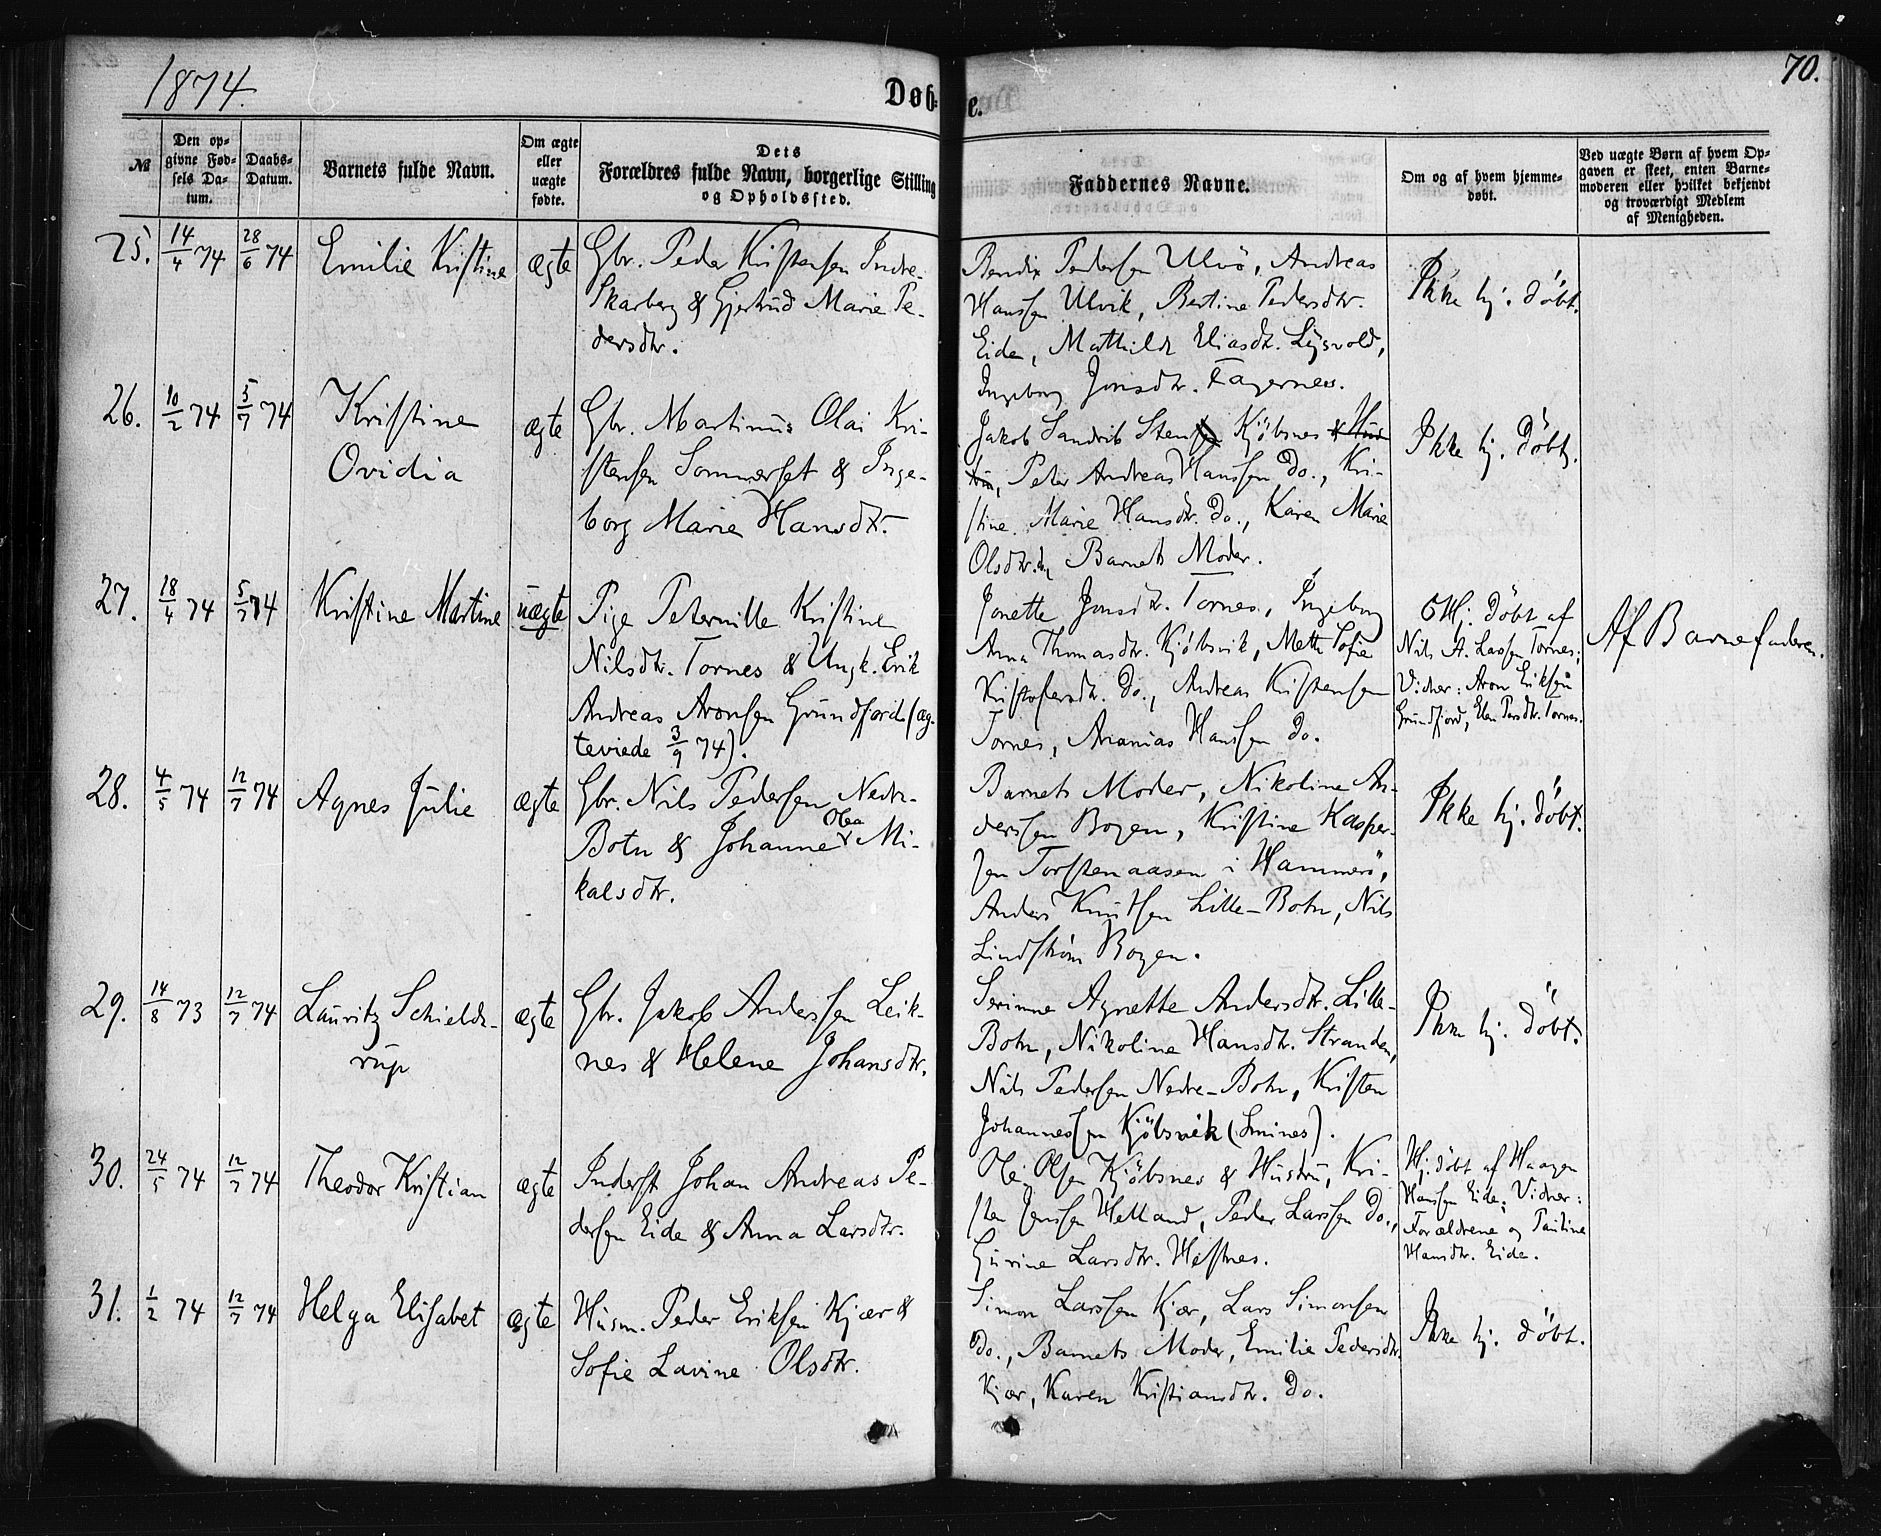 1874.
Døbte.
70.
№
Den opgivne Fødsels Datum.
Daabs-Datum.
Barnets fulde Navn.
Om ægte eller uægte fødte.
Dets Forældres fulde Navn, borgerlige Stilling og Opholdssted.
Faddernes Navne.
Om og af hvem hjemmedøbt.
Ved uægte Børn af hvem Opgaven er skeet, enten Barnemoderen eller hvilket bekjendt og troværdigt Medlem af Menigheden.
25.
14/4 74
28/6 74
Emilie Kristine
ægte
Gbr. Peder Kristensen Indre-
Skarberg & Gjertrud Marie Pe-
dersdtr.
Bendix Pedersen Ulvö, Andreas
Hanssen Ulvik, Bertine Pedersdtr.
Eide, Mathilde Eliasdtr. Lysvold,
Ingeborg Jonsdtr. Fagernes.
Ikke hj. döbt.
26.
10/2 74
5/7 74
Kristine
Ovidia
ægte
Gbr. Martinus Olai Kri-
stensen Sommerset & Inge-
borg Marie Hansdtr.
Jakob Sandrib Sten Kjøbsnes & Hus-
tru, Peter Andreas Hanssen Do., Kri-
stine Marie Hansdtr. Do., Karen Marie
Olsdtr. Barnets Moder.
Ikke hj. Döbt.
27.
18/4 74
5/7 74
Kristine Martine
uægte
Pige Petermille Kristine
Nilsdtr. Tornes & Ungk. Erik
Andreas Aronsen Grundfjord (æg-
teviede 3/9 74).
Jonette Jonsdtr. Tornes, Ingeborg
Anna Thomasdtr. Kjøbsvik, Mette Sofie
Kristofersdtr. Do., Andreas Kristensen
Tornes, Ananias Hanssen Do.
Hj. Döbt af
Nils A. Larssen Tornes;
Vidner: Aron Eriksen
Grundfjord, Elen Parsdtr. Tornes.
Af Barnefaderen.
28.
4/5 74
12/7 74
Agnes Julie
ægte
Gbr. Nils Pedersen Nedre-
Botn & Johanne Olea Mi-
kalsdtr.
Barnets Moder, Nikoline An-
derssen Bogen, Kristine Kasper-
sen Torstenaasen i Hammerö,
Anders Knutsen Lille-Botn, Nils
Lindstrøm Bogen.
Ikke hj. döbt.
29.
14/8 73
12/7 74
Lauritz Schielde-
rup
ægte
Gbr. Jakob Anderssen Leik-
nes & Helene Johansdtr.
Serinne Agnette Andersdtr. Lille-
Botn, Nikoline Hansdtr. Stranden,
Nils Pedersen Nedre-Botn, Kristen
Johannessen Kjöbsvik (Smines).
Ikke hj. döbt.
30.
24/5 74
12/7 74
Theodor Kristian
ægte
Inderst Johan Andreas Pe-
dersen Eide & Anna Larsdtr.
Ole Olsen Kjöbsnes & Hustru, Kri-
sten Jenssen Helland, Peder Larssen Do.,
Gurine Larsdtr. Hestnes.
Hj. döbt af Haagen
Hanssen Eide; Vidner:
Forældrene og Pauline
Hansdtr. Eide.
31.
1/2 74
12/7 74
Helga Elisabet
ægte
Husm. Peder Eriksen Kjær &
Sofie Lavine Olsdtr.
Simon Larssen Kjær, Lars Simonsen
Do., Barnets Moder, Emilie Pedersdtr.
Kjær, Karen Kristiansdtr. Do.
Ikke hj. döbt.